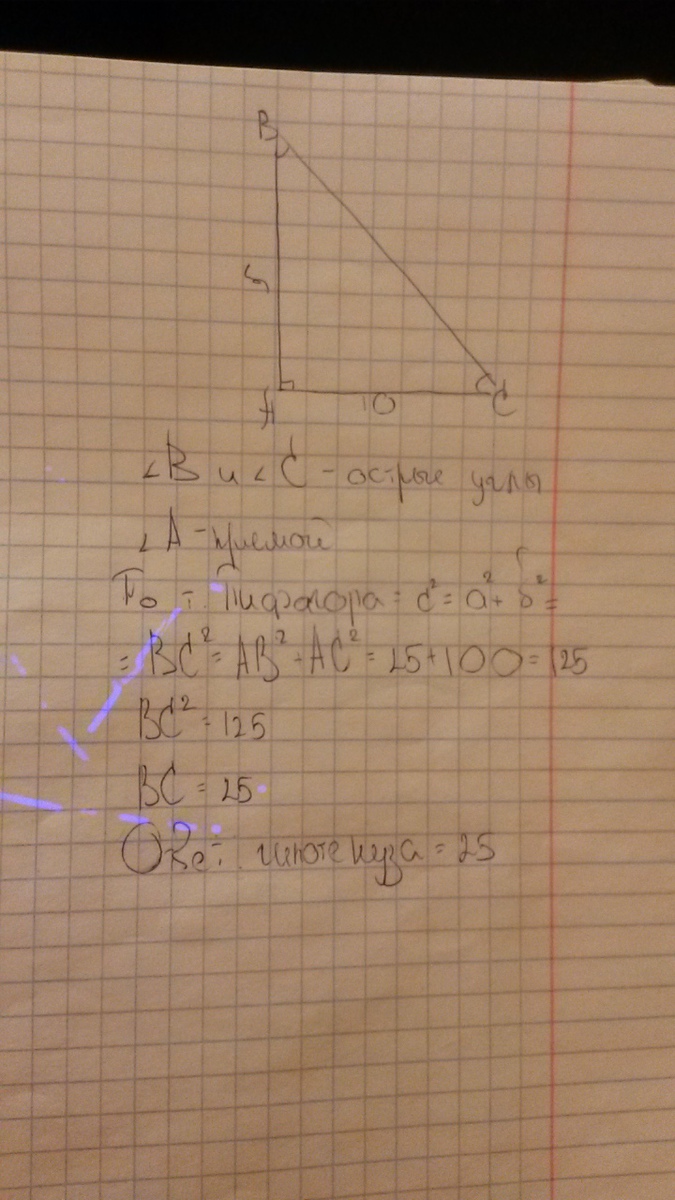 B
5
A
10
C
∠B и ∠C - острые углы
∠A - прямой
По т. Пифагора = c² = a² + b² =
= BC² = AB² + AC² = 25+100 = 125
BC² = 125
BC = 25
Ответ: гипотенуза = 25